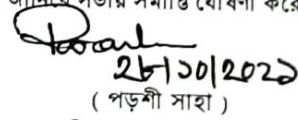 জানিয়ে সভার সমাপ্তি ঘোষনা করে
২৮/১০/২০২১
( পড়শী সাহা )